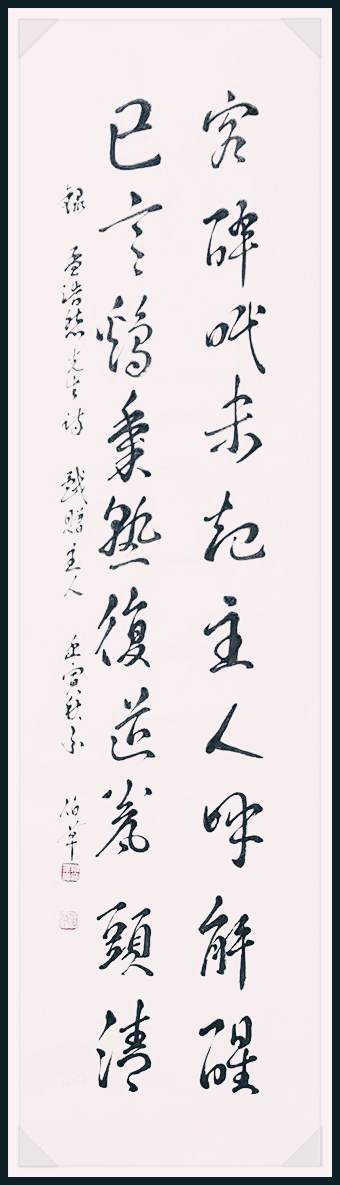 客醉眠未起主人呼解醒
已言鷄黍熟復道甕頭清
錄 孟浩然先生詩 戲贈主人 壬寅秋